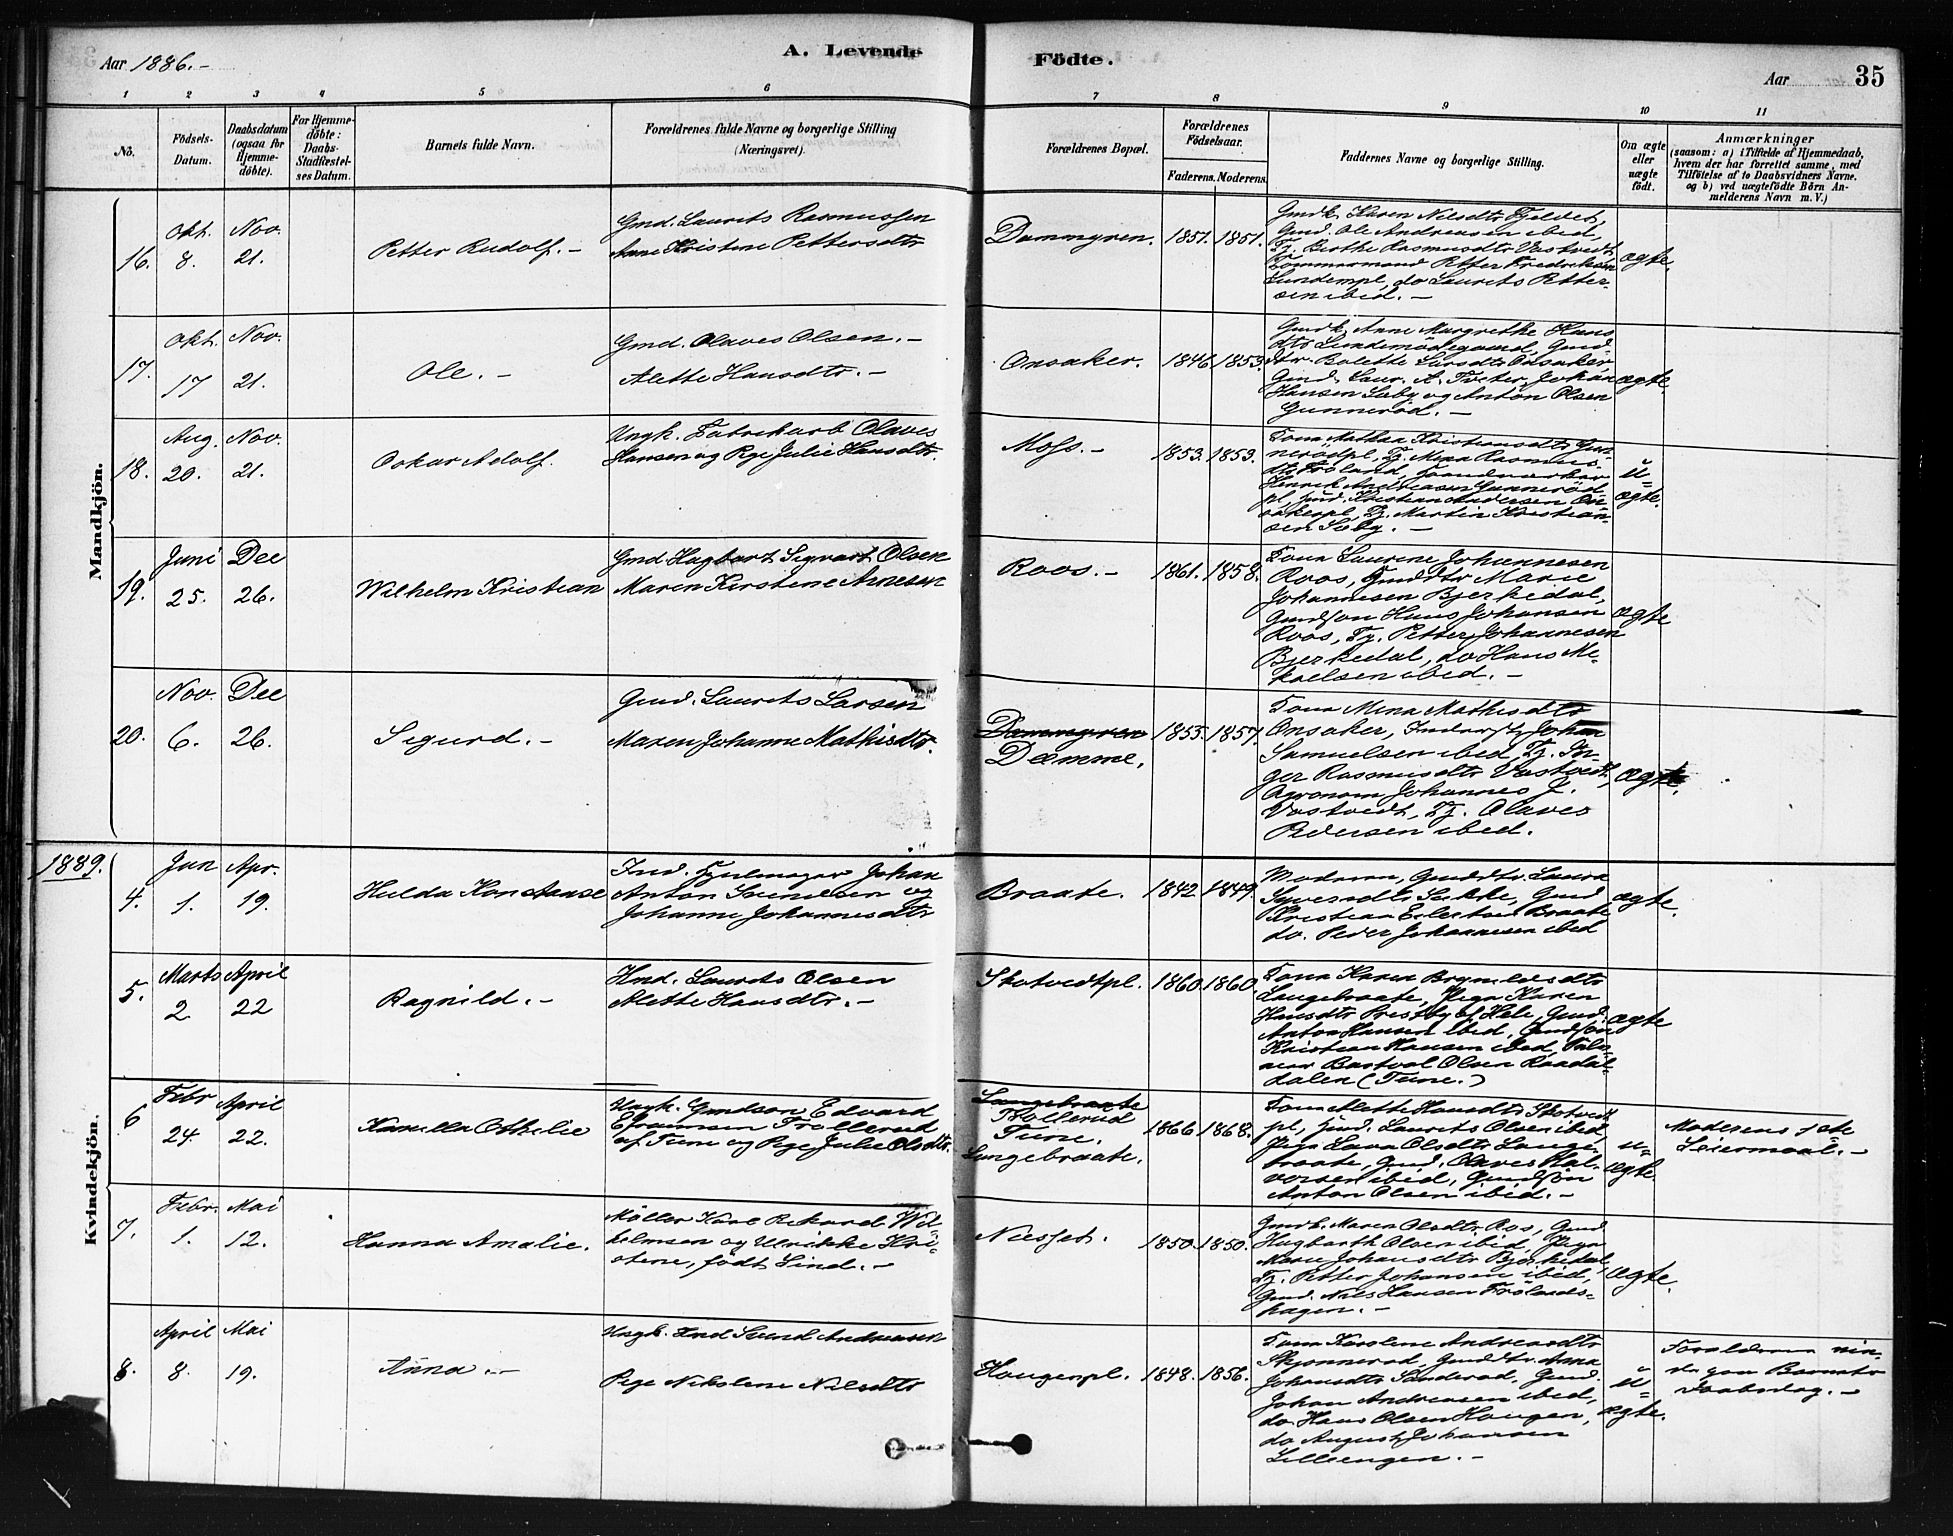 Aar 1886.-
A. Levende
Födte.
Aar
35
1 2 3 4 5 6 7 8 9 10 11
No.
Födsels-
Datum.
Daabsdatum
(ogsaa for
Hjemme-
döbte).
For Hjemme-
döbte:
Daabs-
Stadfæstel-
ses Datum.
Barnets fulde Navn.
Forældrenes fulde Navne og borgerlige Stilling
(Næringsvei).
Forældrenes Bopæl.
Forældrenes
Födselsaar.
Faderens. Moderens.
Faddernes Navne og borgerlige Stilling.
Om ægte
eller
uægte
födt.
Anmærkninger
(saasom: a) i Tilfælde af Hjemmedaab,
hvem der har forrettet samme, med
Tilföielse af to Daabsvidners Navne.
og b) ved uægtefödte Börn An-
melderens Navn m. V.)
Mandkjön.
16.
Okt.
8.
Nov.
21.
Petter Rudolf. -
Gmd. Laurits Rasmussen
Anne Kristine Pettersdtr
Dammyren.
1851. 1851.
Gmdk. Karen Nilsdtr Fjeldet,
Gmd. Ole Andreasen ibid,
Tj. Berthe Rasmusdtr Vastvedt
Tömmermand Petter Fredriksen
Lundempl, do Laurits Petter-
sen ibid. -
ægte.
17.
Okt.
17
Nov.
21.
Ole. -
Gmd. Olaves Olsen. -
Alette Hansdtr. -
Onsaker.
1846 1853.
Gmdk. Anne Margrethe Hans
dtr Gmd
dtr. Bolette Larsdtr Onsaker
Gmd. Laur. A. Tveter, Johan
Hansen Sæby og Anton Olsen
Gunneröd. -
ægte.
18.
Aug.
20.
Nov.
21.
Oskar Adolf.
Ungk. Fabrikarb Olaves
Hansen og Pge Julie Hansdtr.
Moss. -
1853. 1859.
Kona Mathea Kristiansdtr Gun-
nerödpl, Tj. Mina Rasmus-
dtr Fröland,
Henrik Andreasen Gunneröd-
pl, Gmd. Kristian Andersen On-
sakerpl, Tj. Martin Kristian-
sen Sæby. -
u-
ægte.
19.
Juni
25.
Dec
26.
Wilhelm Kristian
Gmd Hagbart Sigvart Olsen
Maren Kirstine Arnesen
Roos. -
1861. 1858.
Kona Laurine Johannesen
Roos, Gmddtr Marie
Johannesen Bjerkedal,
Gmdsön Hans Johansen
Roos, Tj. Petter Johannesen
Bjerkedal, do Hans Mi-
kaelsen ibid. -
ægte
20.
Nov.
6.
Dec
26.
Sigurd. -
Gmd. Laurits Larsen
Maren Johanne Mathisdtr.
Dammyren
Dæmme.
1855. 1857.
Kona Mina Mathisdtr
Onsaker, Johan
Samuelsen ibid, Tj. In-
ger Rasmusdtr Vastvedt,
Agronom Johannes J.
Vastvedt, Tj. Olaves
Pedersen ibid.
ægte.
1889.
Kvindekjön.
4.
Jan
1.
Apr.
19.
Hulda Konstanse
Ind. Hjulmager Johan
Anton Svendsen og
Johanne Johannesdtr
Braate.
1842 1849.
Moderen, Gmddtr. Laura
Syversdtr Sække, Gmd
Kristian Eilertsen Braate
do. Peder Johannesen ibid
ægte.
5.
Marts
2
April
22
Ragnild. -
Hmd. Laurits Olsen
Alette Hansdtr. -
Skotvedtpl.
1860 1860.
Kona Karen Brynildsdtr
Langebraate, Pigen Karen
Hansdtr Prestby af Gmd.
Anton Hansen ibid, Gmdsön
Kristian Hansen ibid,
Bastval Olsen
dalen (Tune.)
ægte
6
Febr
24.
April
22.
Kamilla Othelie
Ungk. Gmdsön Edvard
Efraimsen Trollerud
af Tune og Pge Julie Olsdtr.
Langebraate
Trollerud
Tune.
Langebraate.
1866 1868.
Kona Alette Hansdtr Skotvedt
pl, Gmd. Laurits Olsen ibid
Pigen Laura Olsdtr Lange-
braate, Gmd. Olaves Hal-
vorsen ibid, Gmdsön
Anton Olsen ibid. -
u-
ægte.
Moderens 1ste
Leiermaal. -
7.
Febr.
1.
Mai
12.
Hanna Amalie.
Möller Karl Rikard Wil-
helmsen og Ulrikke Kri-
stine, födt Lind. -
Næsset.
1850 1850.
Gmdk. Maren Olsdtr Ros, Gmd
Hagbarth Olsen ibid, Pigen
Maren Johansdtr Bjerkedal,
Tj. Petter Johansen ibid,
Gmd. Nils Hansen Frölands-
hagen. -
ægte.
8.
April
8.
Mai
19.
Anna. -
Ungk. Ind Svend Andreasen
Pige Nikoline Nilsdtr
Haugenpl.
1848. 1856.
Kona Karoline Andreasdtr
Skjönneröd, Gmddtr. Anna
Johansdtr Gmd.
Johan Andreasen ibid,
do Hans Olsen Haugen,
do August Johansen
Lilleengen. -
u-
ægte.
Forældrene vi-
Barnets
Daabsdag. -